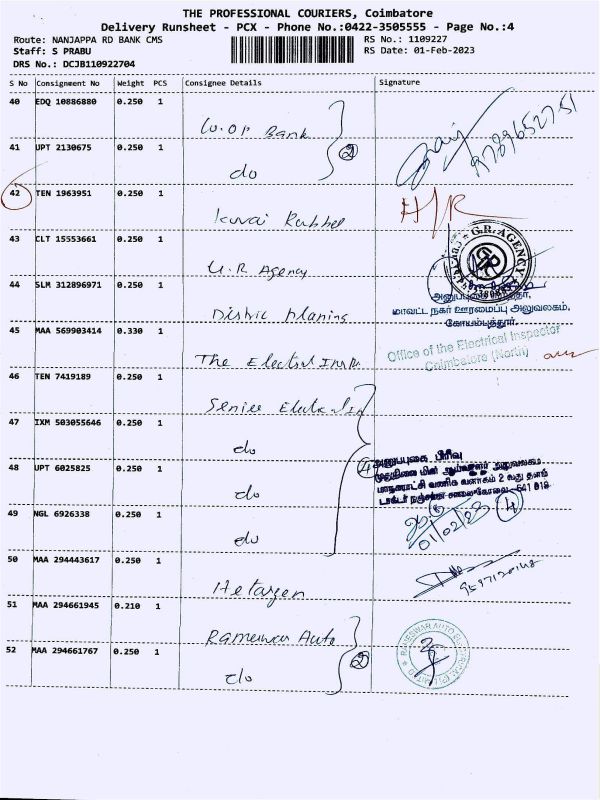 THE PROFESSIONAL COURIERS, Coimbatore
Delivery Runsheet - PCX - Phone No.:0422-3505555 - Page No.:4
Route: NANJAPPA RD BANK CMS
RS No.: 1109227
Staff: S PRABU
RS Date: 01-Feb-2023
DRS No.: DCJB110922704
S No Consignment No Weight PCS Consignee Details Signature
40 EDQ 10886880 0.250 1
Co.op Bank
2
9789652751
41 UPT 2130675 0.250 1
do
42 TEN 1963951 0.250 1
Kovai Rubber
H/R
43 CLT 15553661 0.250 1
G.R Agency
G.R. AGENCY
44 SLM 312896971 0.250 1
Distric Planing
மாவட்ட நகர் ஊரமைப்பு அலுவலகம்,
கோயம்புத்தூர்.
45 MAA 569903414 0.330 1
The Electral Ins
Office of the Electrical Inspector
Coimbatore (North)
46 TEN 7419189 0.250 1
Senior Electral In
47 IXM 503055646 0.250 1
do
4
அனுப்புகை பிரிவு
முதுநிலை மின் ஆய்வாளர் அலுவலகம்
மாநகராட்சி வணிக வளாகம் 2 வது தளம்
டாக்டர் நஞ்சப்பா சாலை கோவை - 641 018
48 UPT 6025825 0.250 1
do
4
01/02/23
49 NGL 6926338 0.250 1
do
50 MAA 294443617 0.250 1
Hetargen
51 MAA 294661945 0.210 1
Rameswar Auto
2
RAMESWAR AUTO ELECTRICAL (P) LIMITED
52 MAA 294661767 0.250 1
do